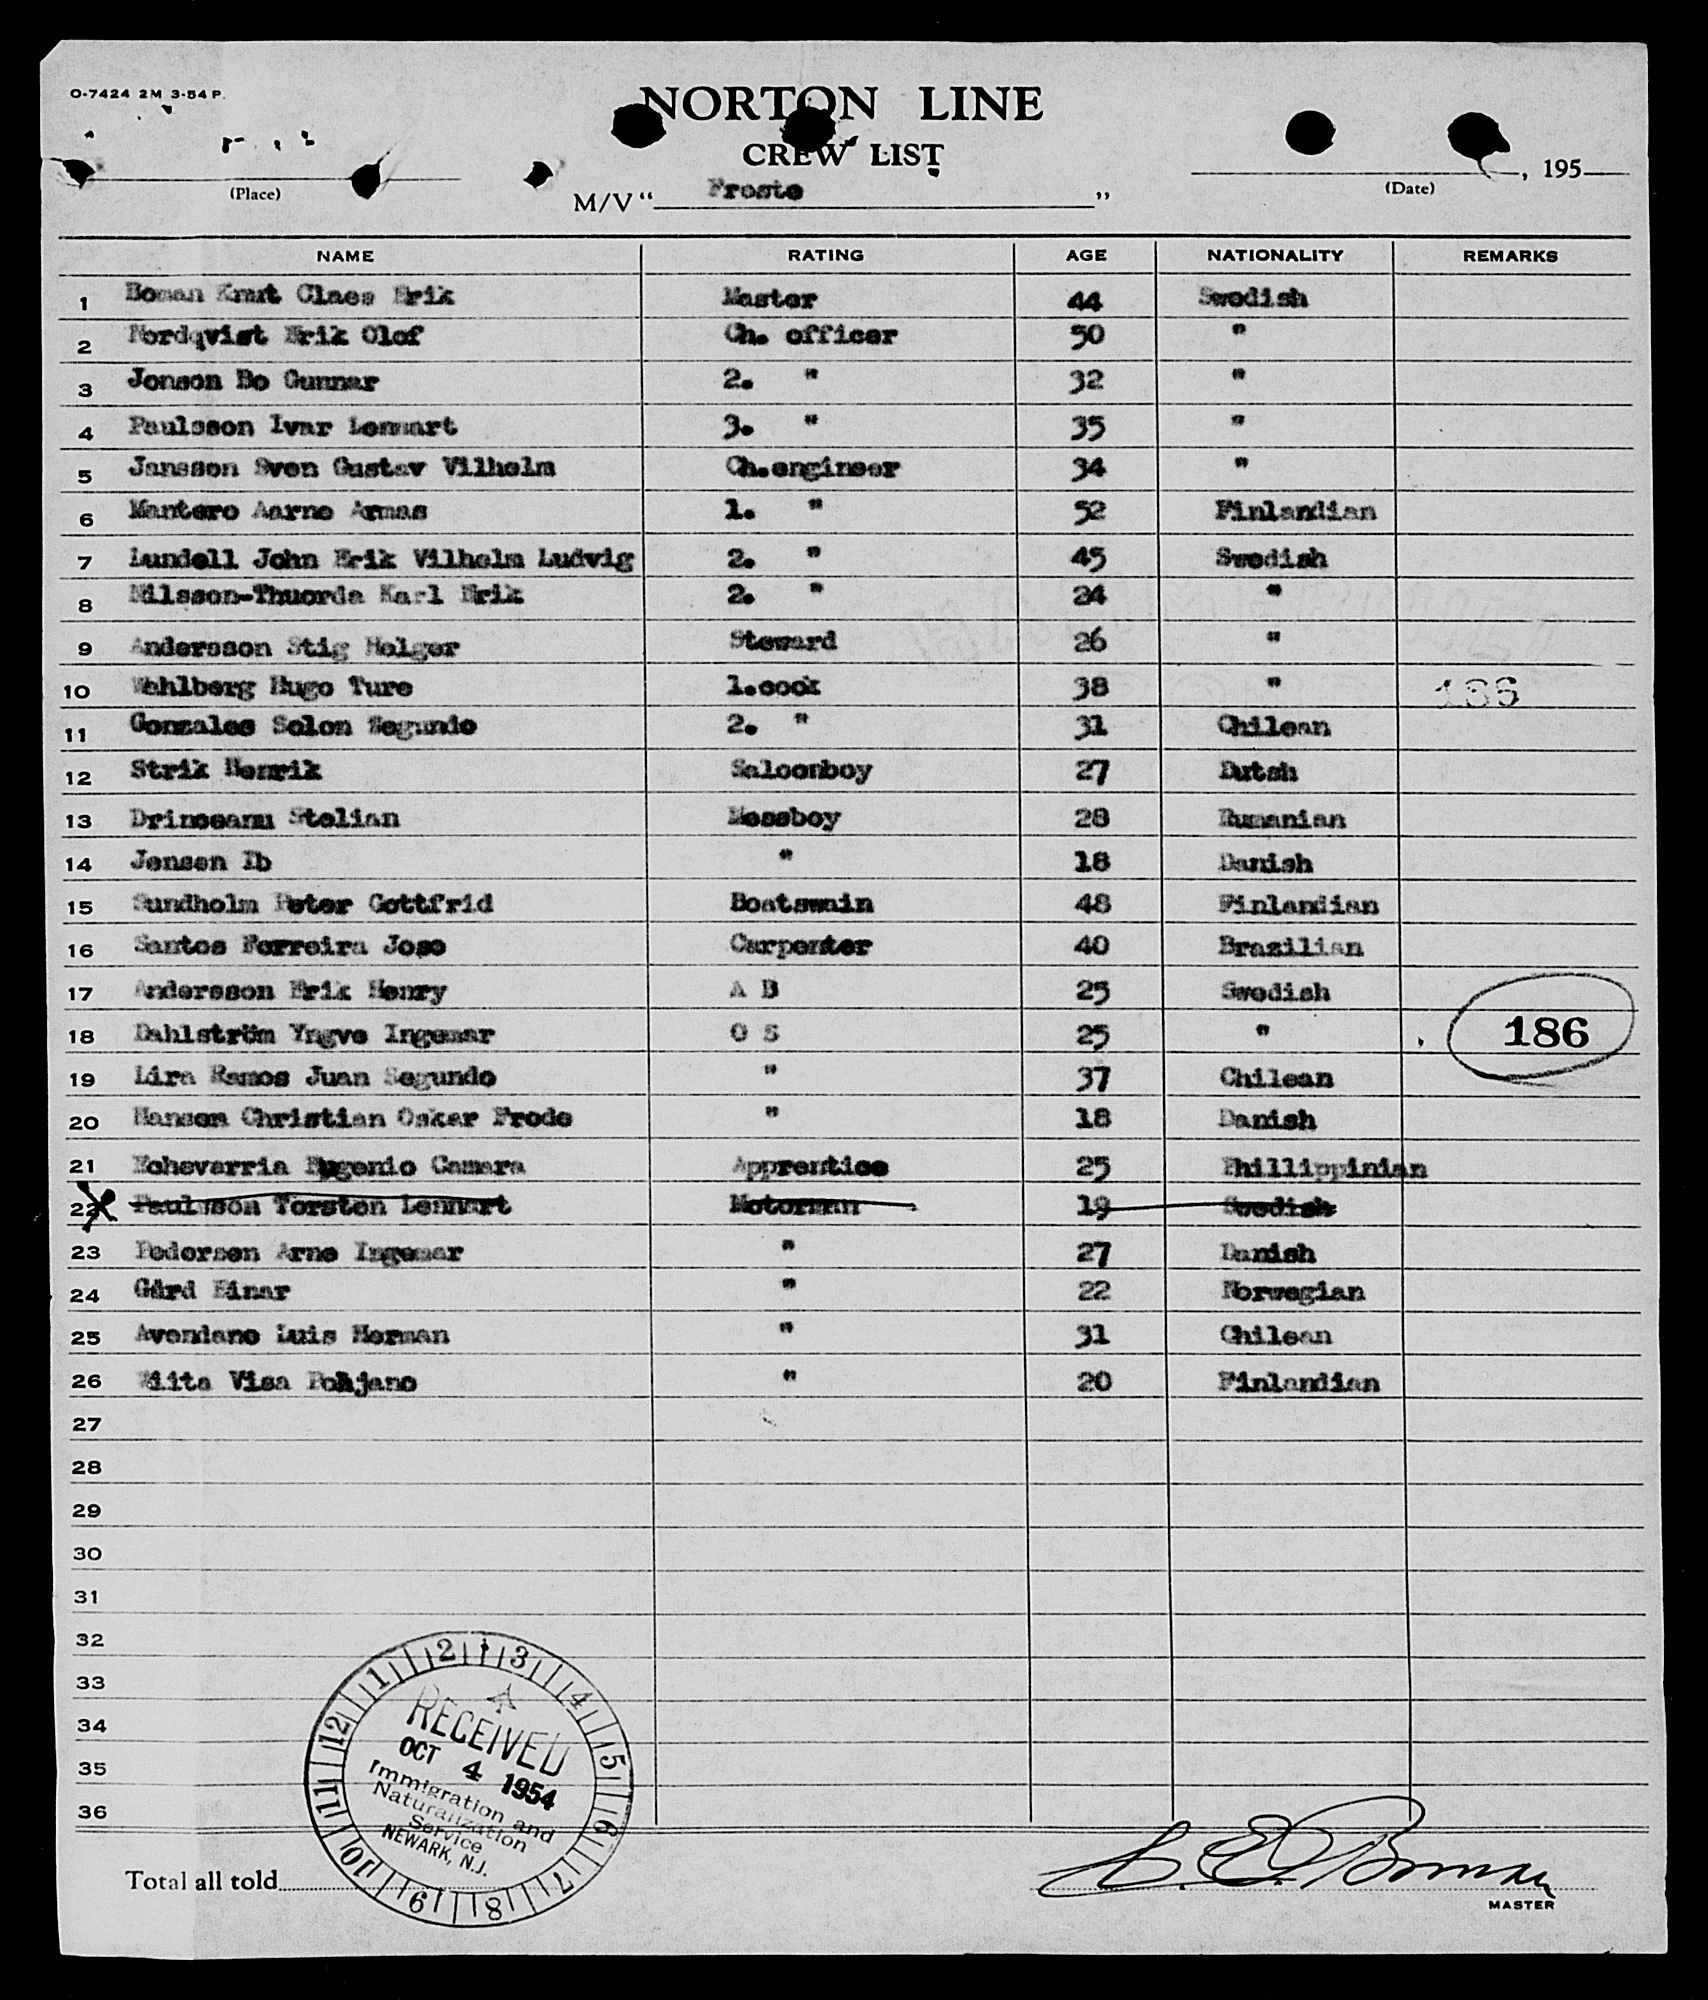 O-7424 2M 3-54 P.
NORTON LINE
CREW LIST
(Place)
M/V " Froste "
(Date) , 195
NAME RATING AGE NATIONALITY REMARKS
1 Boman Knut Claes Erik Master 44 Swedish
2 Nordqvist Erik Olof Ch. officer 50 "
3 Jonson Bo Gunnar 2. " 32 "
4 Paulsson Ivar Lennart 3. " 35 "
5 Jansson Sven Gustav Vilhelm Ch.engineer 34 "
6 Mantero Aarne Armas 1. " 52 Finlandian
7 Lundell John Erik Vilhelm Ludvig 2. " 45 Swedish
8 Nilsson-Thuorda Karl Erik 2. " 24 "
9 Andersson Stig Holger Steward 26 "
10 Wahlberg Hugo Ture 1.cook 38 " 186
11 Gonzales Solon Segundo 2. " 31 Chilean
12 Strik Henrik Saloonboy 27 Dutsh
13 Drinceanu Stelian Messboy 28 Rumanian
14 Jensen Ib " 18 Danish
15 Sundholm Peter Gottfrid Boatswain 48 Finlandian
16 Santos Ferreira Jose Carpenter 40 Brazilian
17 Andersson Erik Henry A B 25 Swedish
18 Dahlström Yngve Ingemar O S 25 " 186
19 Lira Ramos Juan Segundo " 37 Chilean
20 Hansen Christian Oskar Frode " 18 Danish
21 Echevarria Eugenio Camara Apprentice 25 Phillippinian
22 Paulsson Torsten Lennart Motorman 19 Swedish
23 Pedersen Arne Ingemar " 27 Danish
24 Gård Einar " 22 Norwegian
25 Avendano Luis Herman " 31 Chilean
26 Wiita Visa Pohjano " 20 Finlandian
27
28
29
30
31
32
33
34
35
36
1 2 3 4 5 6 7 8 9 10 11 12
RECEIVED
OCT 4 1954
Immigration and
Naturalization
Service
NEWARK, N.J.
Total all told
C. E. Boman
MASTER